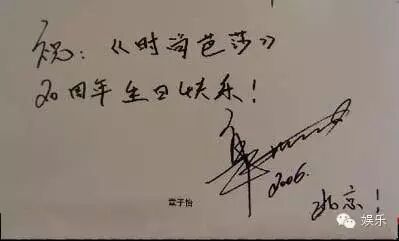 祝：《时尚芭莎》
20周年生日快乐！
2006.
章子怡
北京！
娱乐